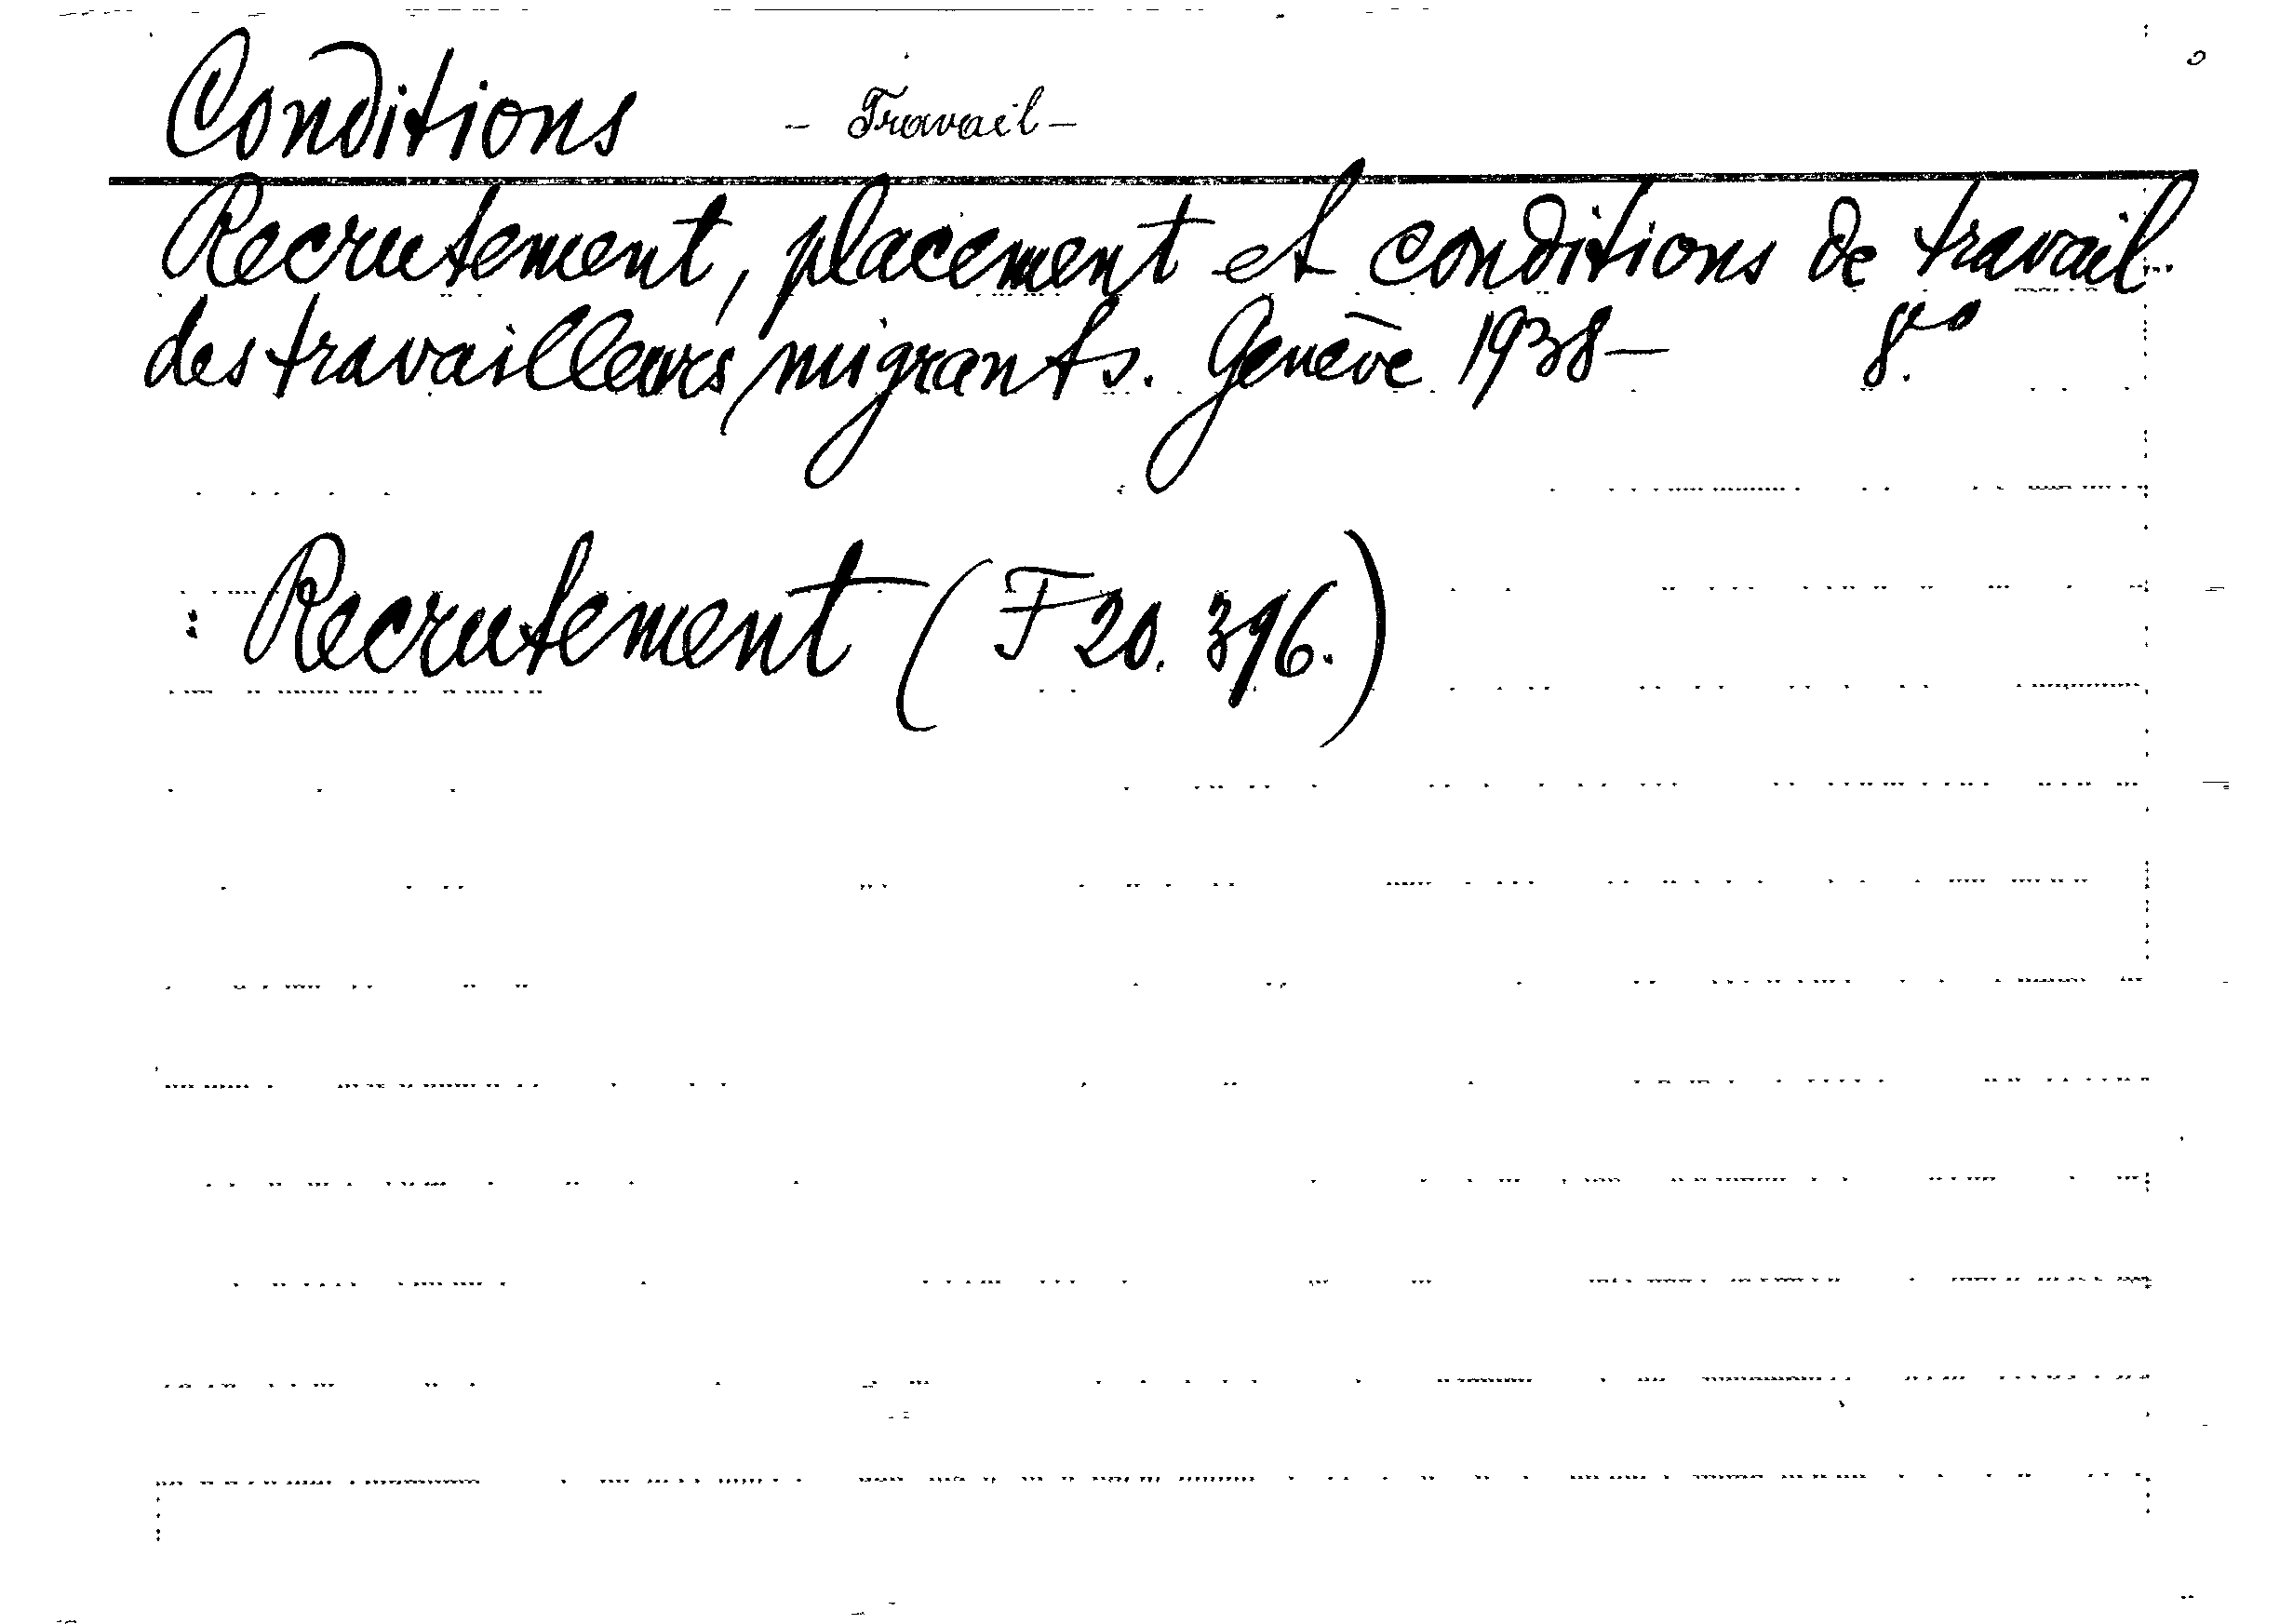 Conditions - Travail -
Recrutement, placement et conditions de travail
des travailleurs migrants. Genève 1938 — 8vo
: Recrutement (F 20. 396.)